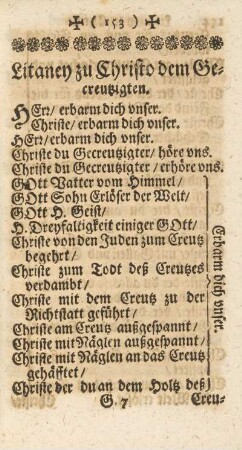 ✠ ( 153 ) ✠
Litaney zu Christo dem Ge-
creutzigten.
HErr/ erbarm dich vnser.
Christe/ erbarm dich vnser.
HErr/ erbarm dich vnser.
Christe du Gecreutzigter/ höre vns.
Christe du Gecreutzigter/ erhöre vns.
GOtt Vatter vom Himmel/
GOtt Sohn Erlöser der Welt/
GOtt H. Geist/
H. Dreyfaltigkeit einiger GOtt/
Christe von den Juden zum Creutz
begehrt/
Christe zum Todt deß Creutzes
verdambt/
Christe mit dem Creutz zu der
Richtstatt geführt/
Christe am Creutz außgespannt/
Christe mit Näglen außgespannt/
Christe mit Näglen an das Creutz
gehäfftet/
Christe der du an dem Holtz deß
Erbarm dich vnser.
G. 7 Creu-